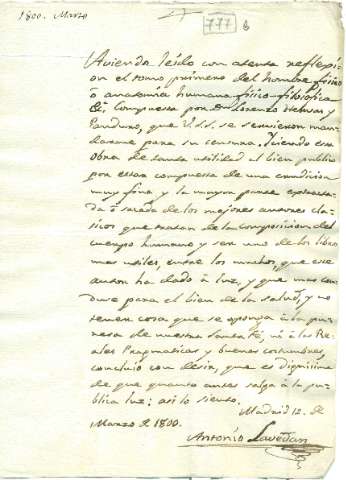 1800. Marzo
777 6
Haviendo leido con atenta reflexi-
on el tomo primero del hombre fisico
o anatomia humana fisico-filosofica
&, compuesta por Dn Lorenzo Hervas y
Panduro, que V.S.S. se sirvieron man-
darme para su censura. Siendo esta
obra de tanta utilidad al bien publico
por estar compuesta de una erudicion
muy fina y la mayor parte extracta-
da o sacada de los mejores autores cla-
sicos que tratan de la composicion del
cuerpo humano y ser uno de los libros
mas utiles, entre los muchos, que ese
autor ha dado à luz, y que mas con-
duce para el bien de la salud, y no
tener cosa que se oponga à la pu-
reza de nuestra Santa fè, ni à las Re-
ales Pragmaticas y buenas costumbres,
concluio con decir, que es dignisima
de que quanto antes salga à la pu-
blica luz: asi lo siento.
Madrid 12. de
Marzo de 1800.
Antonio Lavedan